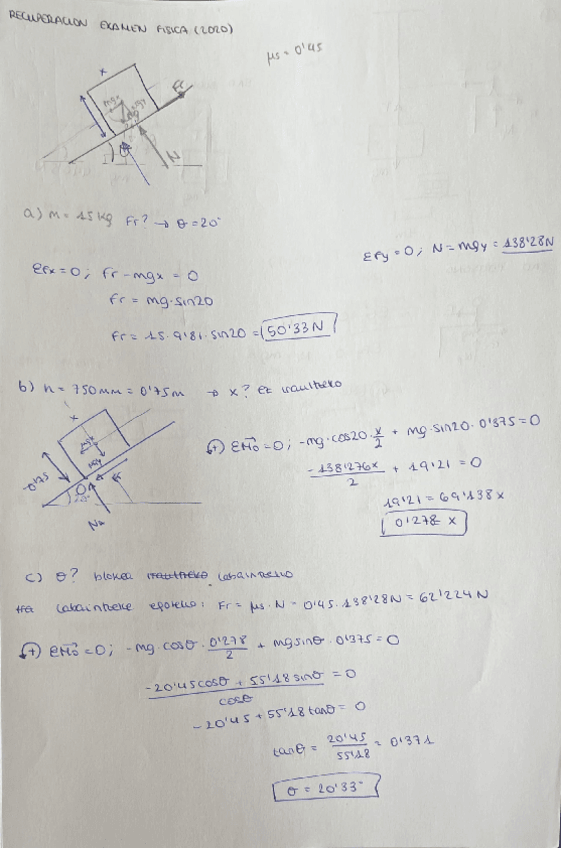 RECUPERACION EXAMEN FISICA (2020)
μs = 0'45
x
Fr
mgx
mgy
N
a) m = 15 kg Fr? → θ = 20°
ΣFy = 0; N = mgy = 138'28N
ΣFx = 0; Fr - mgx = 0
Fr = mg·sin20
Fr = 15·9'81·sin20 = 50'33 N
b) h = 750mm = 0'75m → x? ez iraultzeko
x
mgx
mgy
0'75
20°
+) ΣM⃗o = 0; -mg·cos20·x/2 + mg·sin20·0'375 = 0
-138'276x/2 + 19'21 = 0
19'21 = 69'138x
0'278 = x
c) θ? blokea labaintzeko
labaintzeko: Fr = μs·N = 0'45·138'28N = 62'224N
+) ΣM⃗o = 0; -mg·cosθ·0'278/2 + mgsinθ·0'375 = 0
-20'45cosθ + 55'18sinθ/cosθ = 0
-20'45 + 55'18 tanθ = 0
tanθ = 20'45/55'18 = 0'371
θ = 20'33°